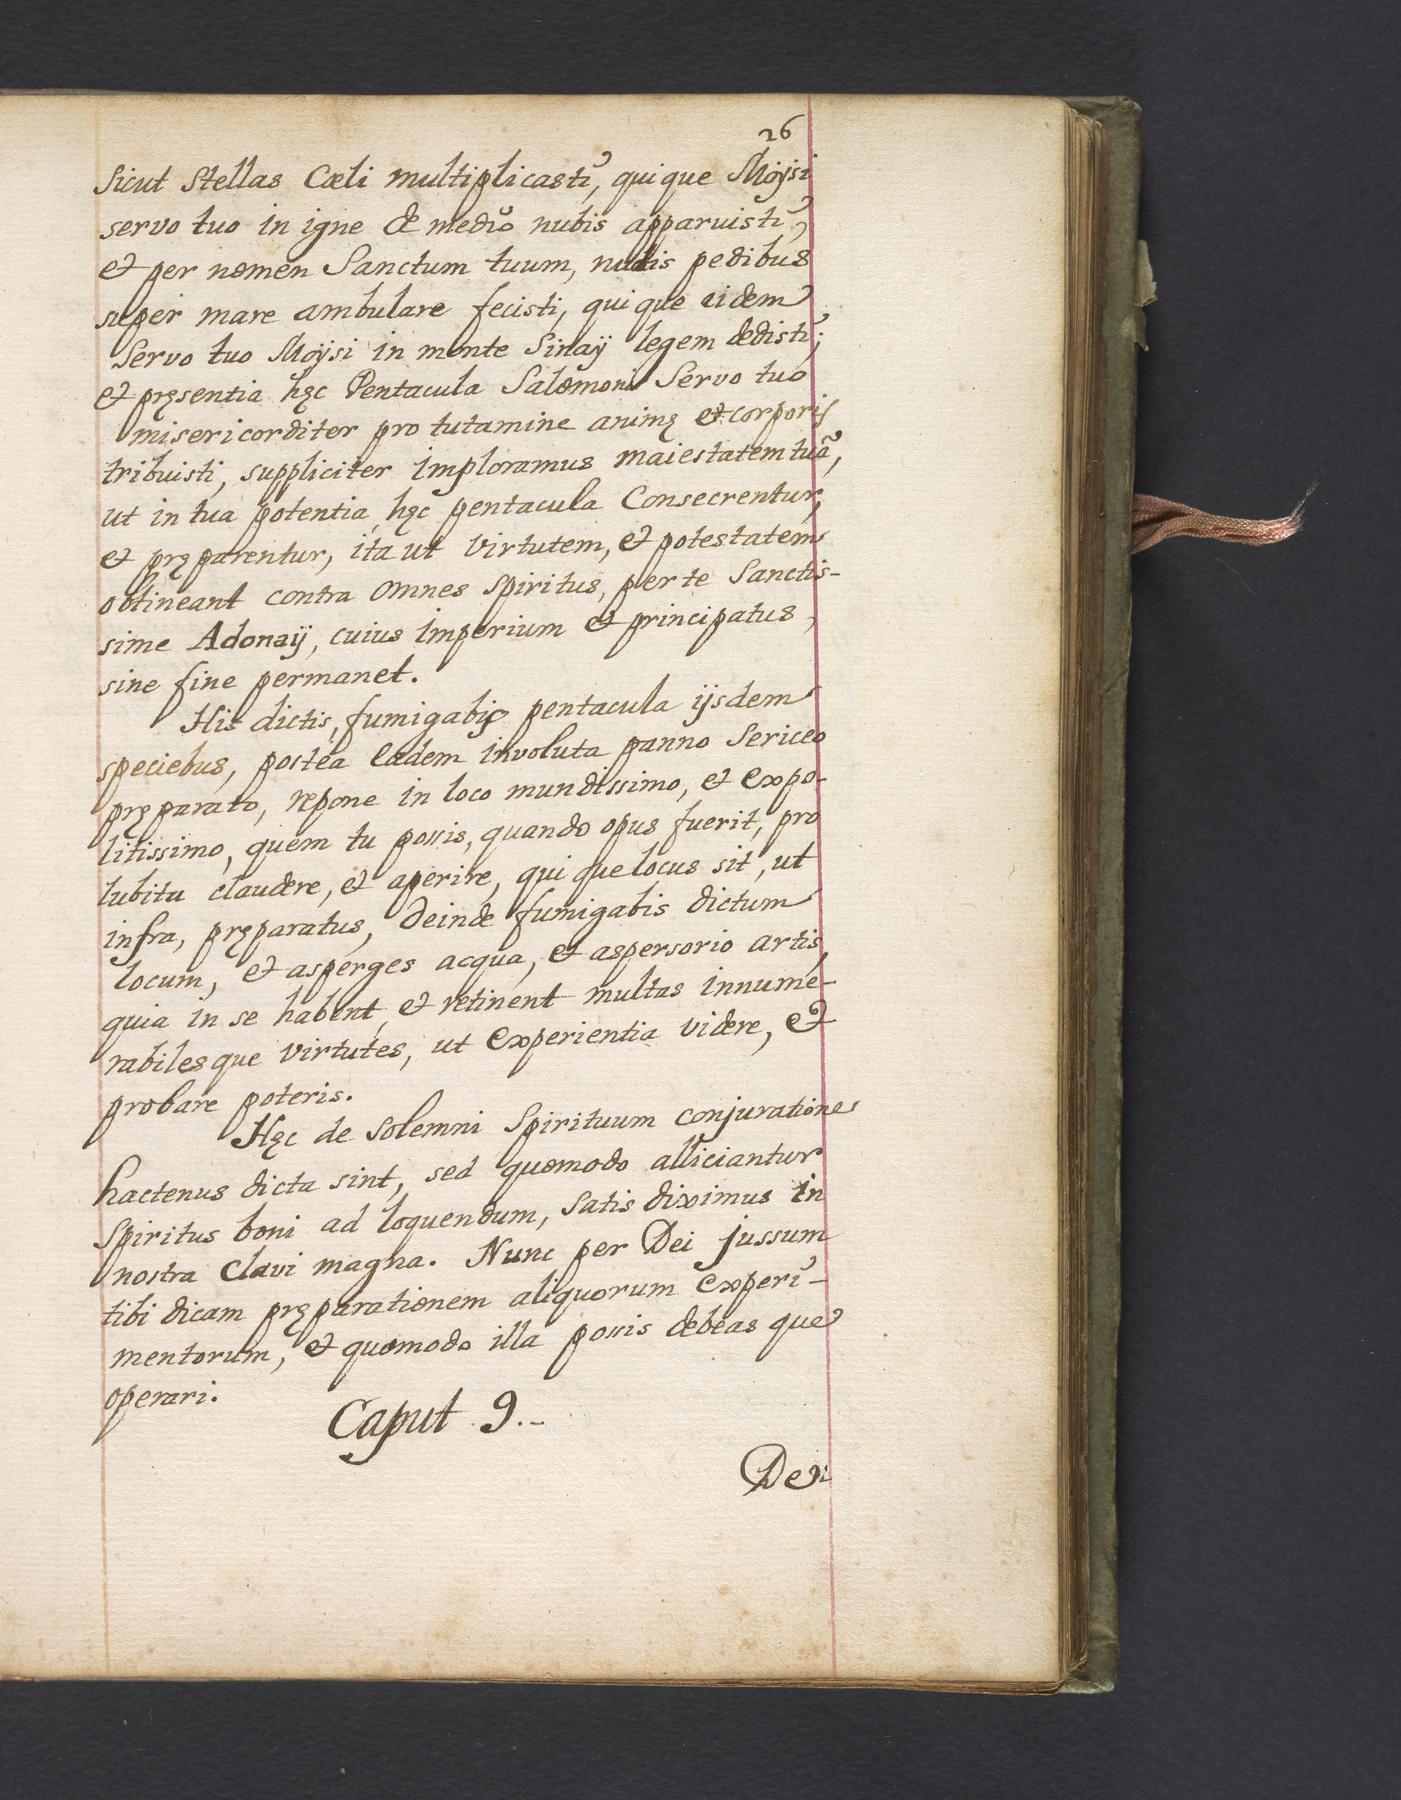 26
Sicut Stellas Cæli multiplicasti, quique Moÿsi
servo tuo in igne de medio nubis apparuisti,
et per nomen Sanctum tuum, nudis pedibus
super mare ambulare fecisti, quique eidem
Servo tuo Moÿsi in monte Sinaÿ legem dedisti;
et pręsentia hęc Pentacula Salomoni Servo tuo
misericorditer pro tutamine animę et corporis
tribuisti, suppliciter imploramus maiestatem tuã,
ut in tua potentia hęc pentacula Consecrentur,
et pręparentur, ita ut virtutem, et potestatem
obtineant contra omnes Spiritus, per te Sanctis-
sime Adonaÿ, cuius imperium et principatus,
sine fine permanet.
His dictis, fumigabis pentacula ijsdem
speciebus, postea eadem involuta panno Sericeo
pręparato, repone in loco mundissimo, et expo-
litissimo, quem tu possis, quando opus fuerit, pro
lubitu claudere, et aperire, quique locus sit, ut
infra, pręparatus, deinde fumigabis dictum
locum, et asperges acqua, et aspersorio artis,
quia in se habent, et retinent multas innume-
rabilesque virtutes, ut experientia videre, et
probare poteris.
Hęc de solemni Spirituum conjuratione
hactenus dicta sint, sed quomodo alliciantur
Spiritus boni ad loquendum, satis diximus in
nostra Clavi magna. Nunc per Dei jussum
tibi dicam pręparationem aliquorum experi-
mentorum, et quomodo illa possis debeas que
operari.
Caput 9.
De